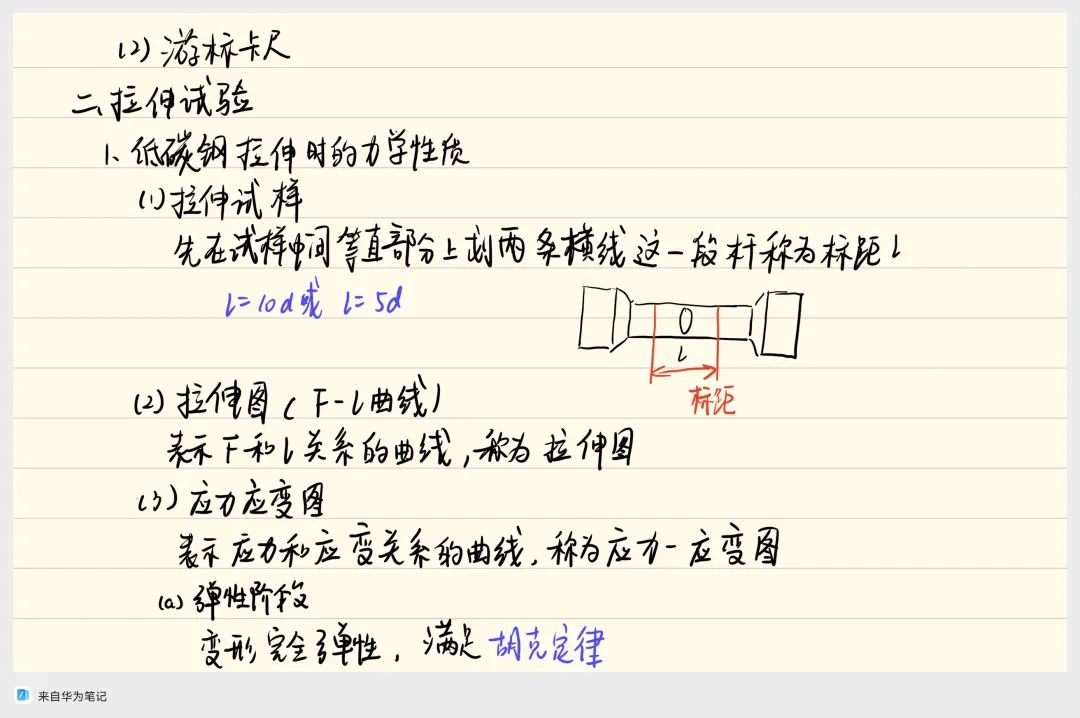 (2) 游标卡尺
二、拉伸试验
1、低碳钢拉伸时的力学性质
(1) 拉伸试样
先在试样中间等直部分上划两条横线这一段杆称为标距 l
l=10d 或 l=5d
l
标距
(2) 拉伸图 ( F-l 曲线)
表示 F 和 l 关系的曲线,称为 拉伸图
(3) 应力应变图
表示 应力和应变关系的曲线,称为应力-应变图
(a) 弹性阶段
变形完全弹性,满足 胡克定律
来自华为笔记